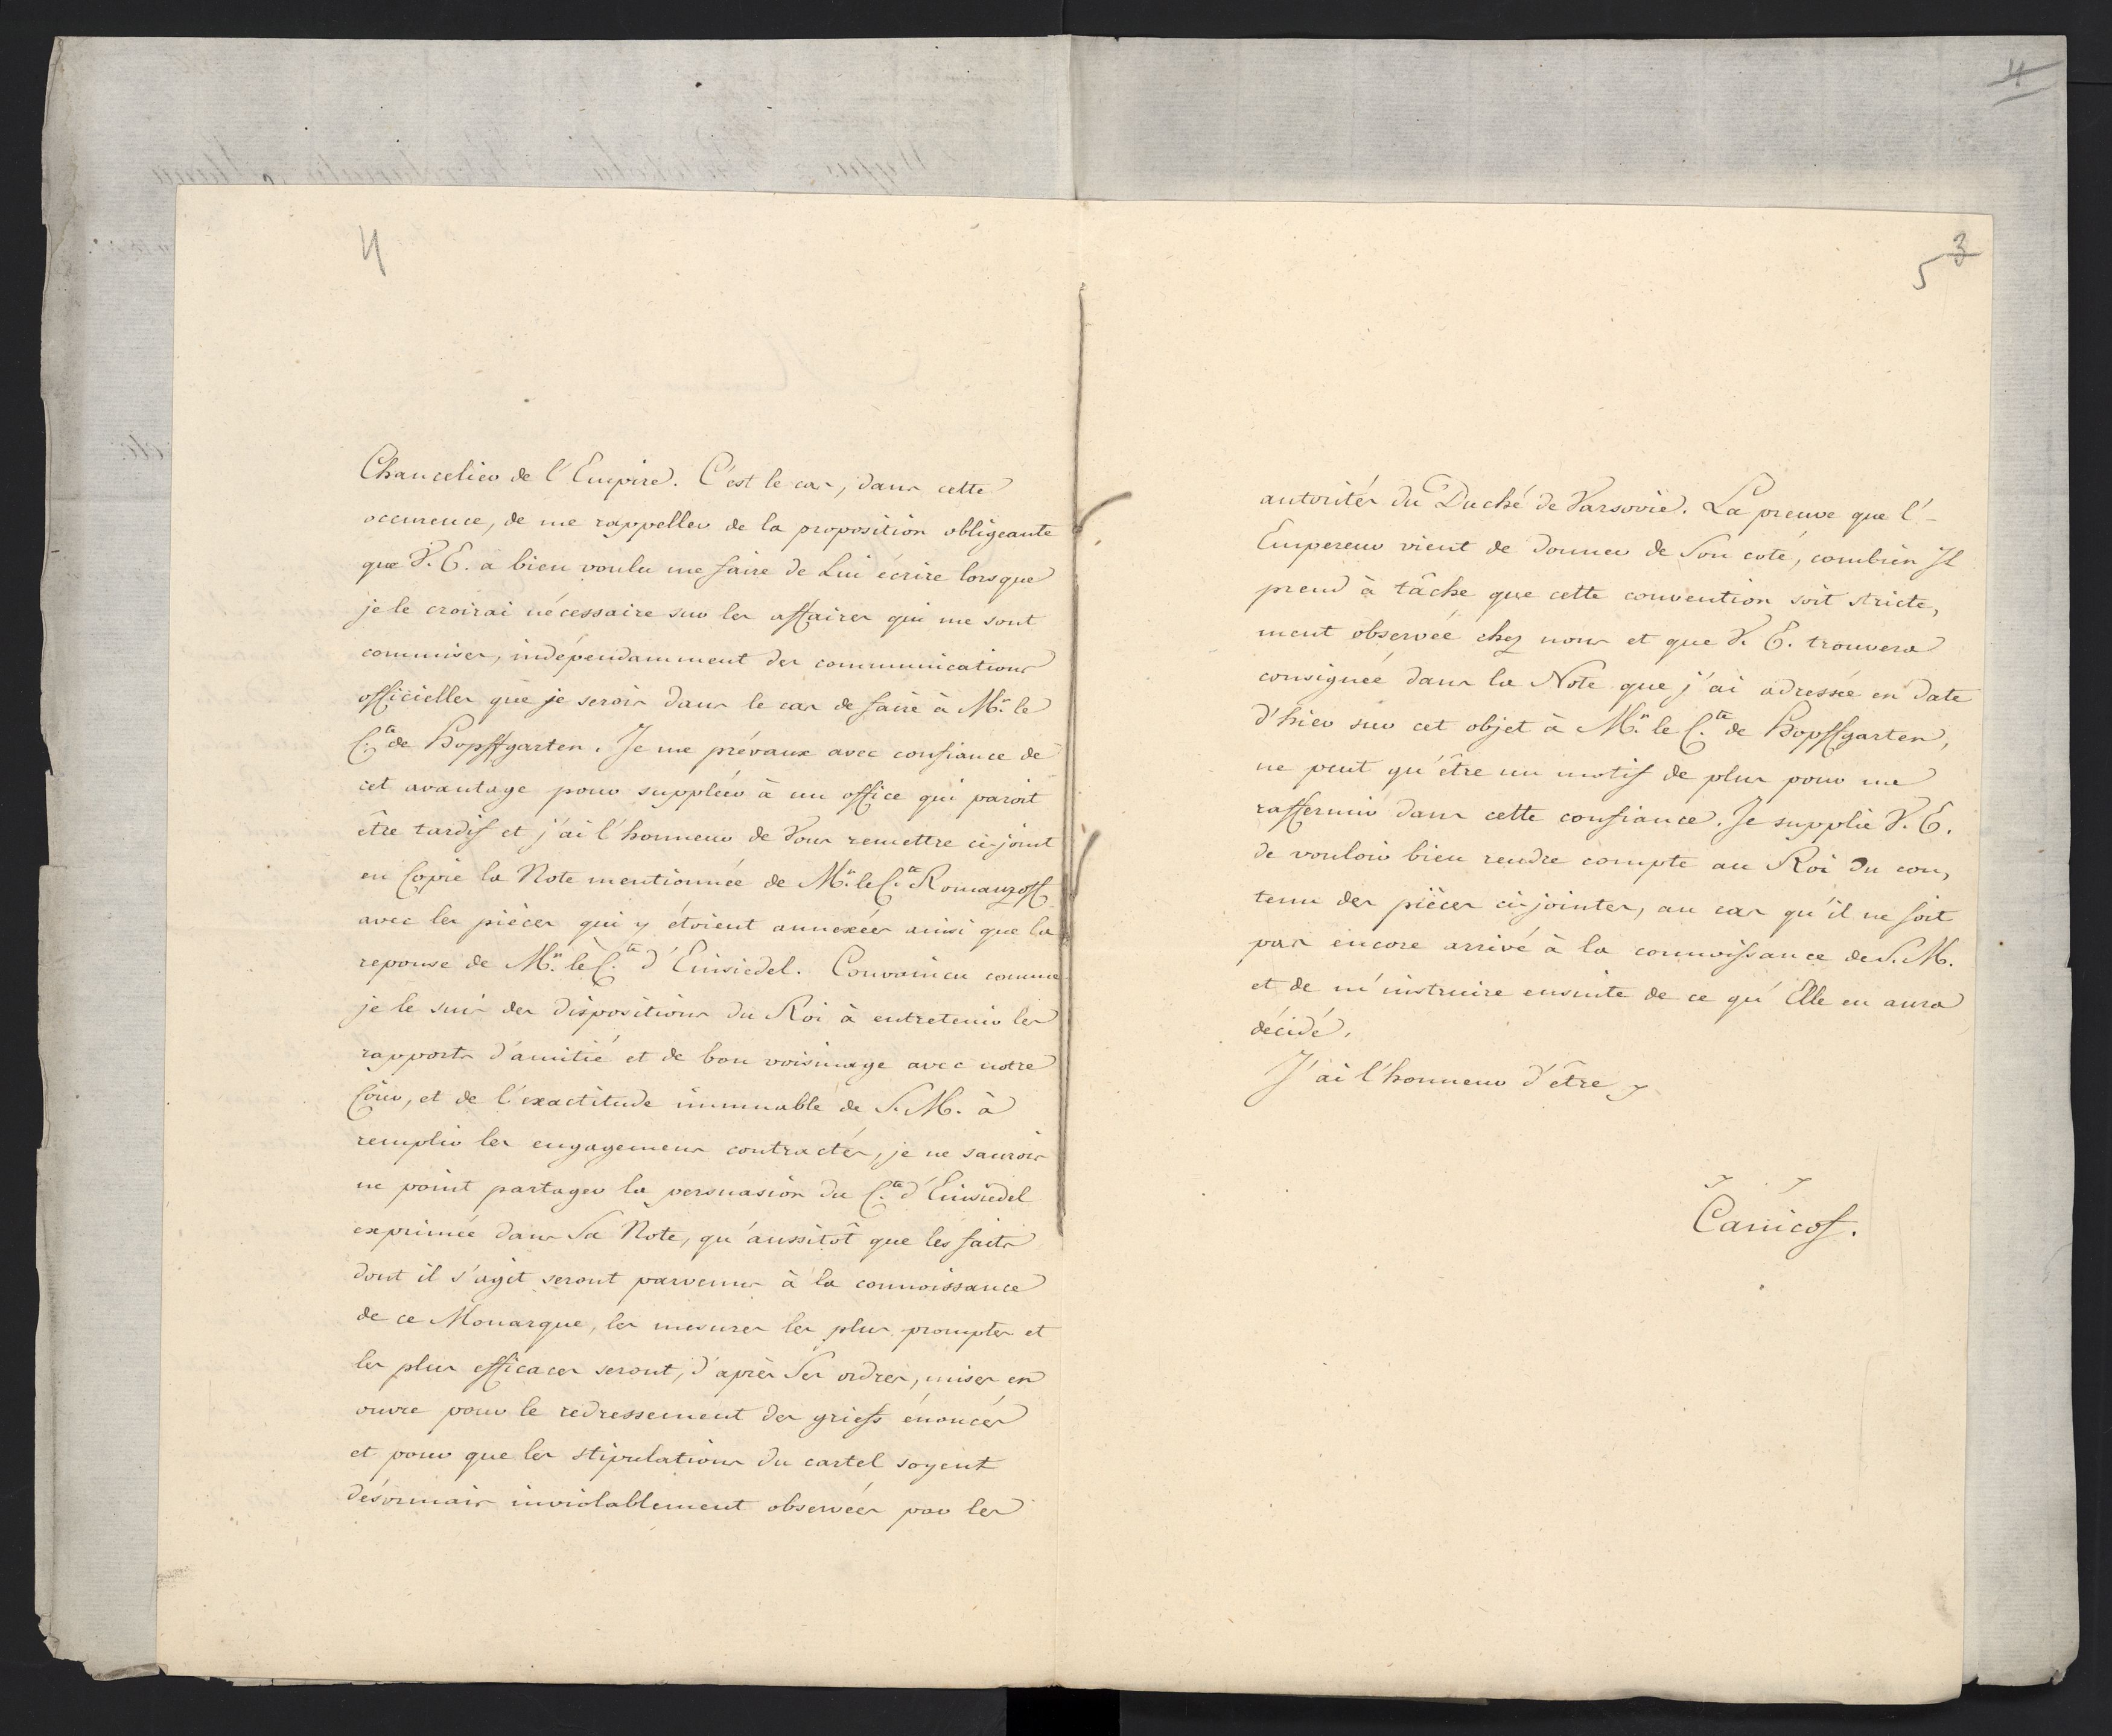 4
Chancelier de l'Empire. C'est le cas, dans cette
occurence, de me rappeller de la proposition obligeante
que V. E. a bien voulu me faire de Lui écrire lorsque
je le croirai nécessaire sur les affaires qui me sont
commises, indépendamment des communications
officielles que je serois dans le cas de faire à Mr. le
C.te de Hopffgarten. Je me prévaux avec confiance de
cet avantage pour suppléer à un office qui paroit
être tardif et j'ai l'honneur de Vous remettre ci-joint
en Copie la Note mentionnée de Mr. le C.te Romanzoff
avec les pièces qui y étoient annexées ainsi que la
reponse de Mr. le C.te d'Einsiedel. Convaincu comme
je le suis des dispositions du Roi à entretenir les
rapports d'amitié et de bon voisinage avec notre
Cour, et de l'exactitude immuable de S. M. à
remplir les engagemens contractés, je ne saurois
ne point partager la persuasion du C.te d'Einsiedel
exprimée dans Sa Note, qu'aussitôt que les faits
dont il s'agit seront parvenus à la connoissance
de ce Monarque, les mesures les plus promptes et
les plus efficaces seront, d'après Ses ordres, mises en
ouvre pour le redressement des griefs énoncés
et pour que les stipulations du cartel soyent
désormais inviolablement observées par les
4
3
5
autorités du Duché de Varsovie. La preuve que l'-
Empereur vient de donner de Son coté, combien Il
prend à tâche que cette convention soit stricte,
ment observée chez nous et que V. E. trouvera
consignée dans la Note que j'ai adressée en date
d'hier sur cet objet à Mr. le C.te de Hopffgarten,
ne peut qu'être un motif de plus pour me
raffermir dans cette confiance. Je supplie V. E.
de vouloir bien rendre compte au Roi du con,
tenu des pièces ci-jointes, au cas qu'il ne soit
pas encore arrivé à la connoissance de S. M.
et de m'instruire ensuite de ce qu'Elle en aura
décidé.
J'ai l'honneur d'être
Canicof.